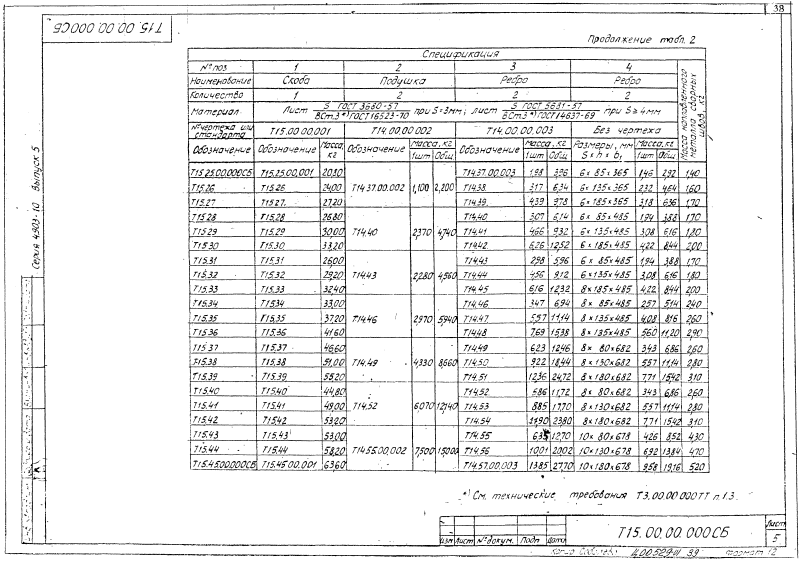 38
Т15.00.00.000СБ
Продолжение табл. 2
Серия 4.903-10 Выпуск 5
Спецификация
№ поз 1 2 3 4
Наименование Скоба Подушка Ребро Ребро
Количество 1 2 2 2
Материал Лист S ГОСТ 3680-57 / ВСт.3*) ГОСТ 16523-70 при S=3мм; лист S ГОСТ 5681-57 / ВСт3*) ГОСТ 14637-69 при S≥4мм
№ чертежа или стандарта Т15.00.00.001 Т14.00.00.002 Т14.00.00.003 Без чертежа Масса наплавленного металла сварных швов, кг
Обозначение Обозначение Масса, кг Обозначение Масса, кг 1шт Общ. Обозначение Масса, кг 1шт Общ. Размеры, мм S×h×b₁ Масса, кг 1шт Общ.
Т15.25.00.000СБ Т15.25.00.001 20,80 Т14.37.00.003 1,98 3,96 6×85×365 1,46 2,92 1,40
Т15.26 Т15.26 24,00 Т14.37.00.002 1,100 2,200 Т14.38 3,17 6,34 6×135×365 2,32 4,64 1,60
Т15.27 Т15.27 27,20 Т14.39 4,39 8,78 6×185×365 3,18 6,36 1,70
Т15.28 Т15.28 26,80 Т14.40 3,07 6,14 6×85×485 1,94 3,88 1,70
Т15.29 Т15.29 30,00 Т14.40 2,370 4,740 Т14.41 4,66 9,32 6×135×485 3,08 6,16 1,80
Т15.30 Т15.30 33,20 Т14.42 6,26 12,52 6×185×485 4,22 8,44 2,00
Т15.31 Т15.31 26,00 Т14.43 2,98 5,96 6×85×485 1,94 3,88 1,70
Т15.32 Т15.32 29,20 Т14.43 2,280 4,560 Т14.44 4,56 9,12 6×135×485 3,08 6,16 1,80
Т15.33 Т15.33 32,40 Т14.45 6,16 12,32 8×185×485 4,22 8,44 2,00
Т15.34 Т15.34 33,00 Т14.46 3,47 6,94 8×85×485 2,57 5,14 2,40
Т15.35 Т15.35 37,20 Т14.46 2,970 5,940 Т14.47 5,57 11,14 8×135×485 4,08 8,16 2,60
Т15.36 Т15.36 41,60 Т14.48 7,69 15,38 8×135×485 5,60 11,20 2,90
Т15.37 Т15.37 46,60 Т14.49 6,23 12,46 8×80×682 3,43 6,86 2,60
Т15.38 Т15.38 51,00 Т14.49 4,330 8,660 Т14.50 9,22 18,44 8×130×682 5,57 11,14 2,80
Т15.39 Т15.39 55,20 Т14.51 12,36 24,72 8×180×682 7,71 15,42 3,10
Т15.40 Т15.40 44,80 Т14.52 5,86 11,72 8×80×682 3,43 6,86 2,60
Т15.41 Т15.41 49,00 Т14.52 6,070 12,140 Т14.53 8,85 17,70 8×130×682 5,57 11,14 2,80
Т15.42 Т15.42 53,20 Т14.54 11,90 23,80 8×180×682 7,71 15,42 3,10
Т15.43 Т15.43 53,00 Т14.55 6,35 12,70 10×80×678 4,26 8,52 4,30
Т15.44 Т15.44 58,20 Т14.55.00.002 7,500 15,000 Т14.56 10,01 20,02 10×130×678 6,92 13,84 4,70
Т15.45.00.000СБ Т15.45.00.001 63,60 Т14.57.00.003 13,85 27,70 10×180×678 9,58 19,16 5,20
*) См. технические требования Т3.00.00.000ТТ п.1.3
Изм Лист № докум. Подп Дата
Т15.00.00.000СБ
Лист
5
формат 12